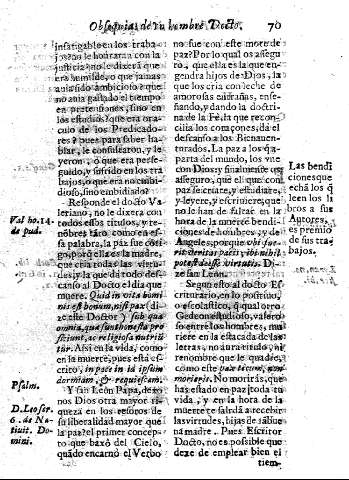 Obsequias de vn hombre Docto. 70
infatigable en los traba-
jos? no le honràra con la
justicia? no le dixera que
era humilde, o que jamàs
auia sido ambicioso? que
no auia gastado el tiempo
en pretensiones, sino en
los estudios? que era ora-
culo de los Predicado-
res? pues para saber ha-
blar, le consultaron, y le-
yeron, o que era perse-
guido, y sufrido en los tra-
bajos, o que era no embi-
dioso, sino embidiado?
Responde el docto Va-
leriano, no le dixera con
todos essos titulos, y re-
nombres tāto como en es-
sa palabra, la paz fue cōti-
go, porq̄ ella es la madre,
que cria todas las virtu-
des: y la que dà todo des-
canso al Docto el dia que
muere. Quid in vita homi-
nis est bonum, nisi pax (di-
ze este Doctor) sub qua
omnia, quæ sunt honesta pro
ficiunt, ac religiosa nutriū-
tur. Assi en la vida, como
en la muerte, pues està es-
crito, in pace in id ipsum
dormiam, & requiescam.
Y san Leon Papa, de es-
nos Dios otra mayor ri-
queza en los tesoros de
su liberalidad mayor que
la paz? el primer concep-
to que baxò del Cielo,
quādo encarnò el Verbo
Val ho. 14.
de pud.
Psalm.
D. Leo ser.
6. de Na-
tiuit. Do-
mini.
no fue con este more de
paz? Por lo qual os assegu-
ro, que ella es la que en-
gendra hijos de Dios, la
que los cria con leche de
amorosas enseñanças, ense-
ñando, y dando la doctri-
na de la Fè, la que recon-
cilia los coraçones, dà el
descanso a los Bienauen-
turados. La paz a los q̄ a-
parta del mundo, los vne
con Dios: y finalmente os
asseguro, que el que con
paz se criare, y estudiare,
y leyere, y escriuiere, que
no le han de faltar en la
hora de la muerte bendi-
ciones de hombres, y de
Angeles, porque vbi fue-
rit veritas pacis, ibi nihil
potest deesse virtutis. Di-
ze san Leon.
Segun esto al docto Es-
criturario, en lo positiuo,
o escolastico, q̄ qual otro
Gedeon estudioso, y valero-
so entre los hombres, mu-
riere en la estacada de las
letras, no aurà titulo, ni
renombre que le quadre,
como este pax tecum, non
morieris. No moriràs, que
has estado en paz toda tu
vida, y en la hora de la
muerte te saldrà a recebir
las virtudes, hijas de la sue
na madre. Pues Escritor
Docto, no es possible que
deze de emplear bien el
tiem-
Las bendi
ciones que
echā los q̄
leen los li
bros a sus
Autores,
es premio
de sus tra-
bajos.